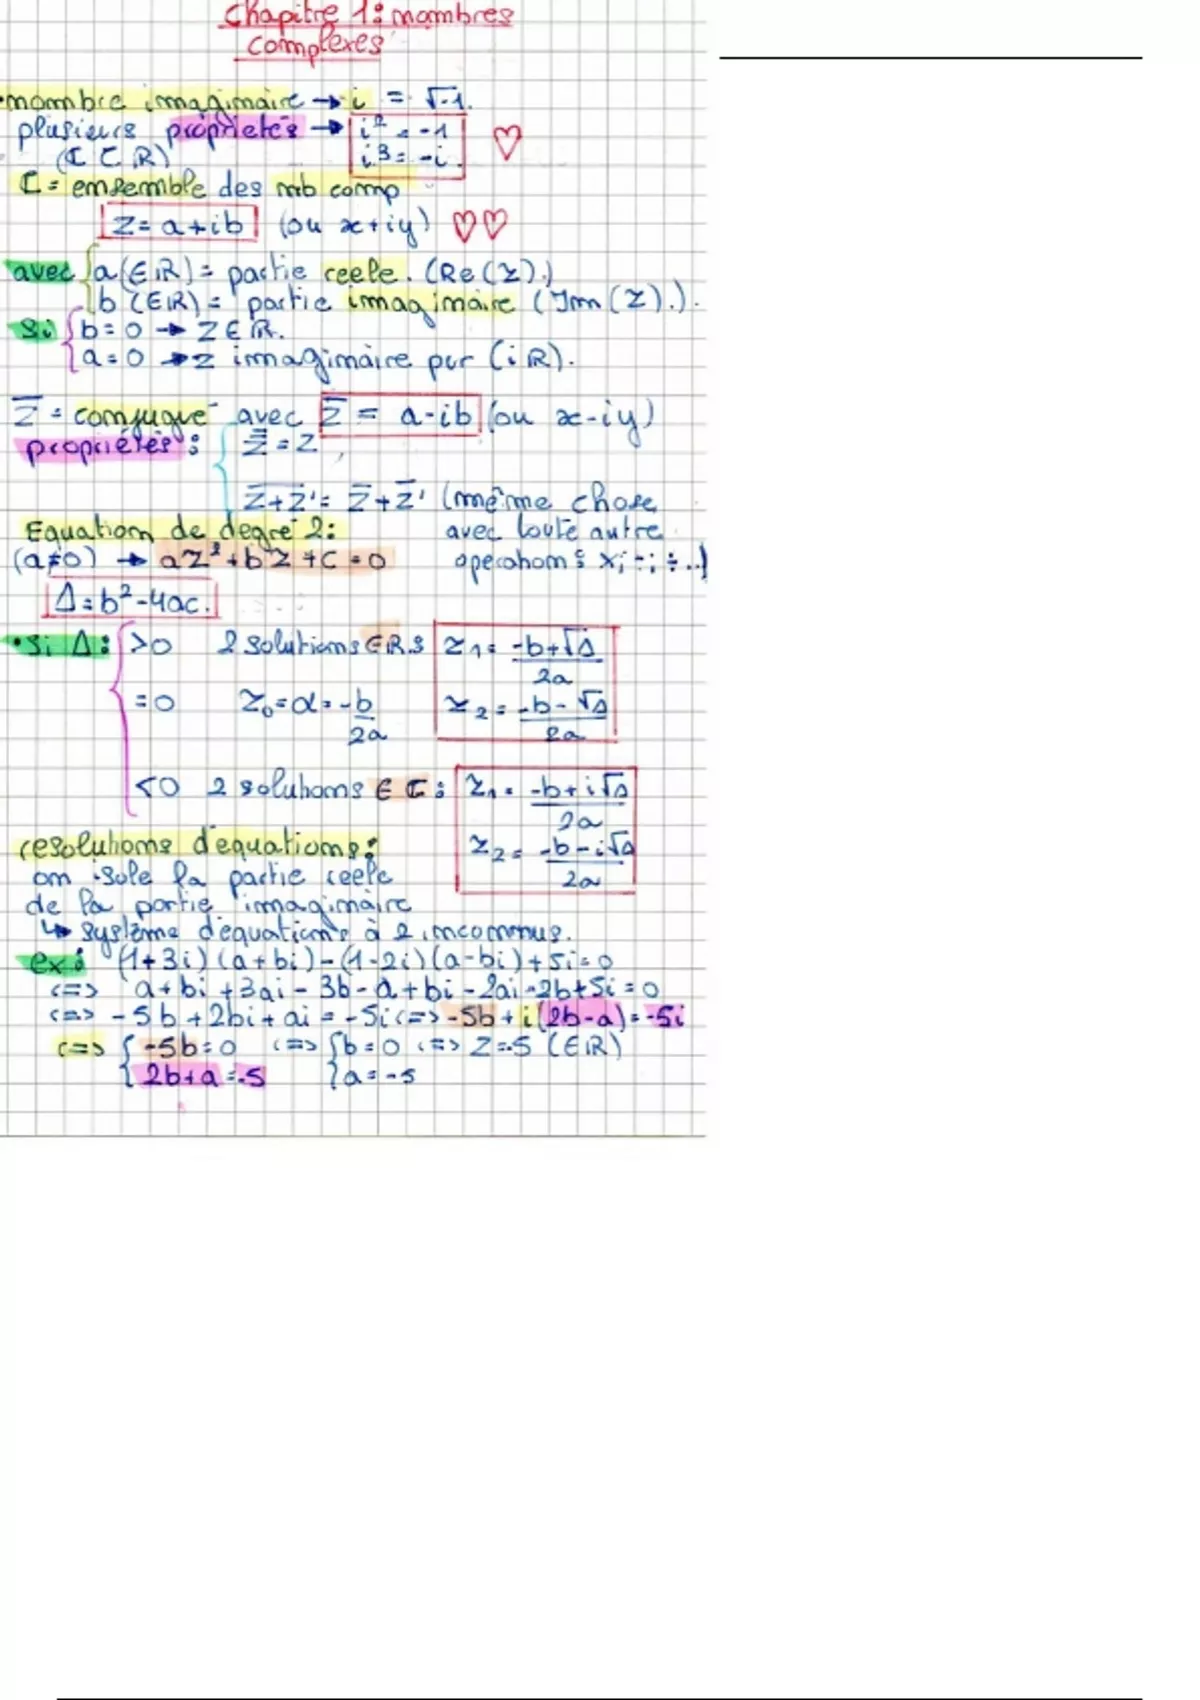 Chapitre 1: nombres
complexes
•nombre imaginaire → i = √-1.
plusieurs propriétés → i² = -1
(ℂ ⊂ ℝ) i³ = -i.
ℂ = ensemble des nb comp
z = a + ib (ou x + iy)
avec a (∈ ℝ) = partie réele. (Re(z).)
b (∈ ℝ) = partie imaginaire (Im(z).).
Si b = 0 → z ∈ ℝ.
a = 0 → z imaginaire pur (iℝ).
z̄ = conjugué avec z̄ = a - ib (ou x - iy)
propriétés : z̿ = z ,
z̅+̅z̅'̅ = z̄ + z̄' (même chose
Equation de degré 2: avec toute autre
(a≠0) → az² + bz + c = 0 operation : ×; -; ÷ ..)
Δ = b² - 4ac.
•Si Δ : >0 2 solutions ∈ ℝ : z₁ = (-b+√Δ)/2a
=0 z₀ = α = -b/2a z₂ = (-b-√Δ)/2a
<0 2 solutions ∈ ℂ : z₁ = (-b+i√Δ)/2a
resolutions d'equations: z₂ = (-b-i√Δ)/2a
on isole la partie réele
de la partie imaginaire
↳ système d'équations à 2 inconnus.
ex : (1+3i)(a+bi) - (1-2i)(a-bi) + 5i = 0
<=> a + bi + 3ai - 3b - a + bi - 2ai - 2b + 5i = 0
<=> -5b + 2bi + ai = -5i <=> -5b + i(2b-a) = -5i
<=> { -5b = 0 <=> { b = 0 <=> z = -5 (∈ ℝ)
2b + a = -5 a = -5